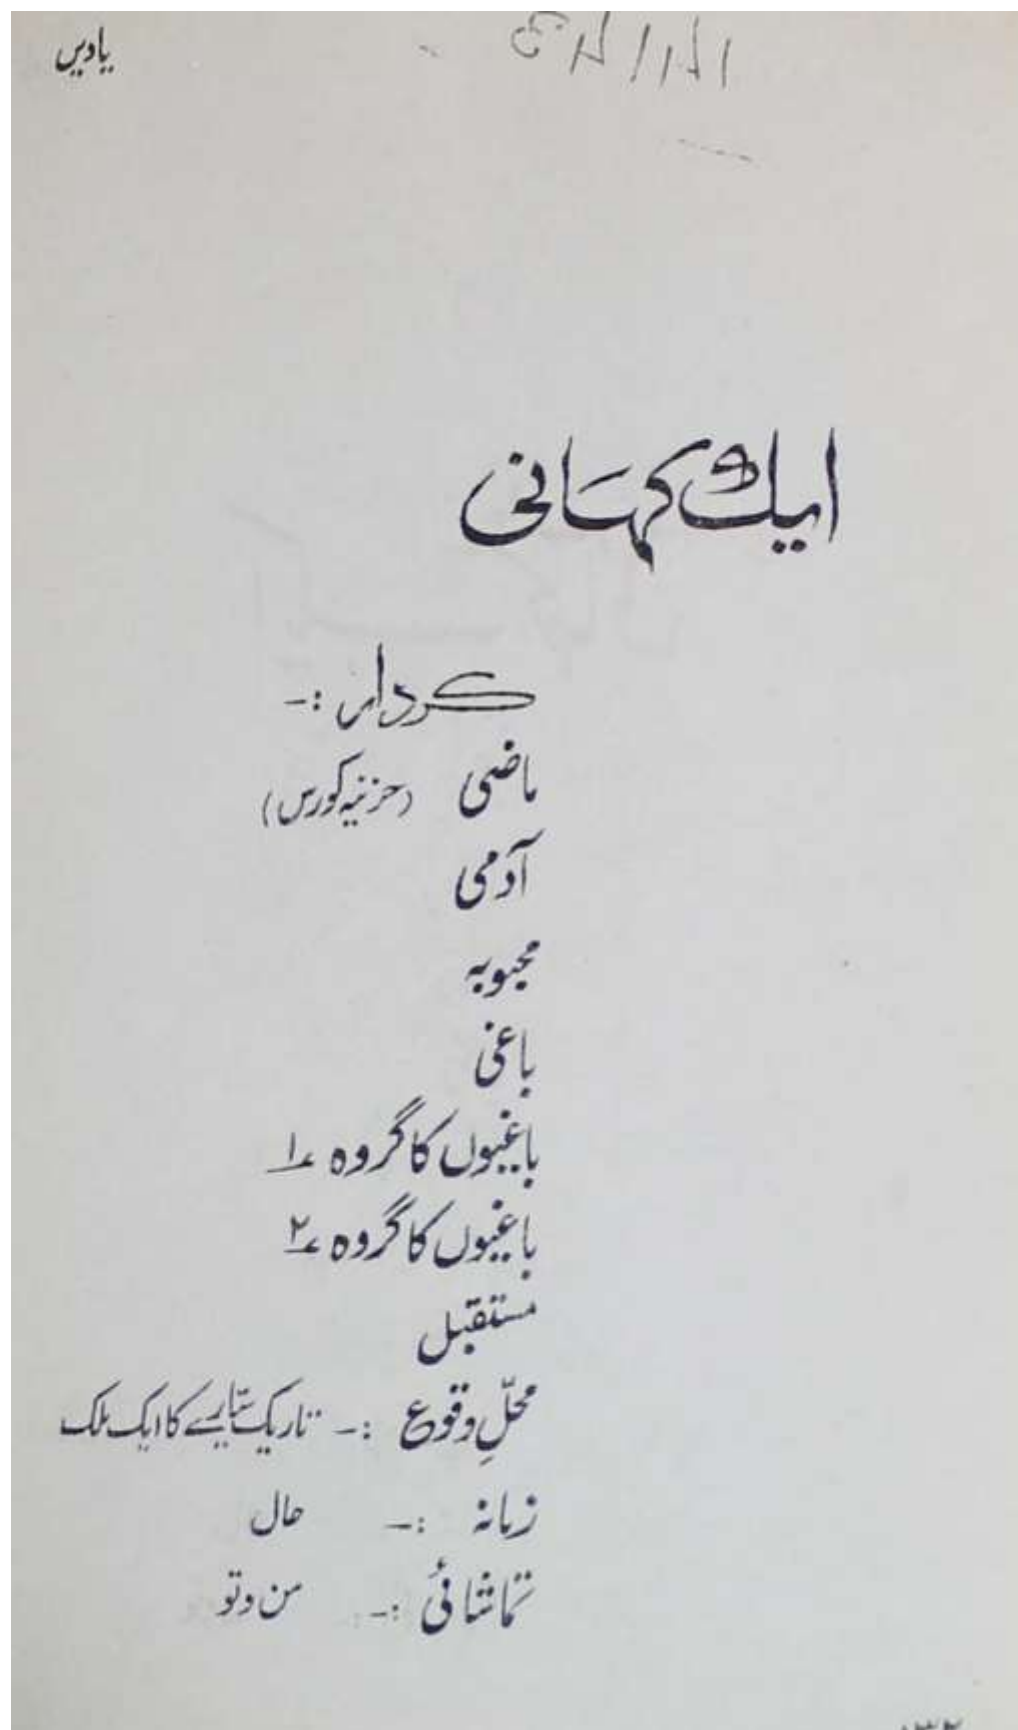 یادیں
ایک کہانی
کردار :-
ماضی (حزنیہ کورس)
آدمی
محبوبہ
باغی
باغیوں کا گروہ ۱؎
باغیوں کا گروہ ۲؎
مستقبل
محلِّ وقوع :- تاریک ستارے کا ایک ملک
زمانہ :- حال
تماشائی :- من و تو